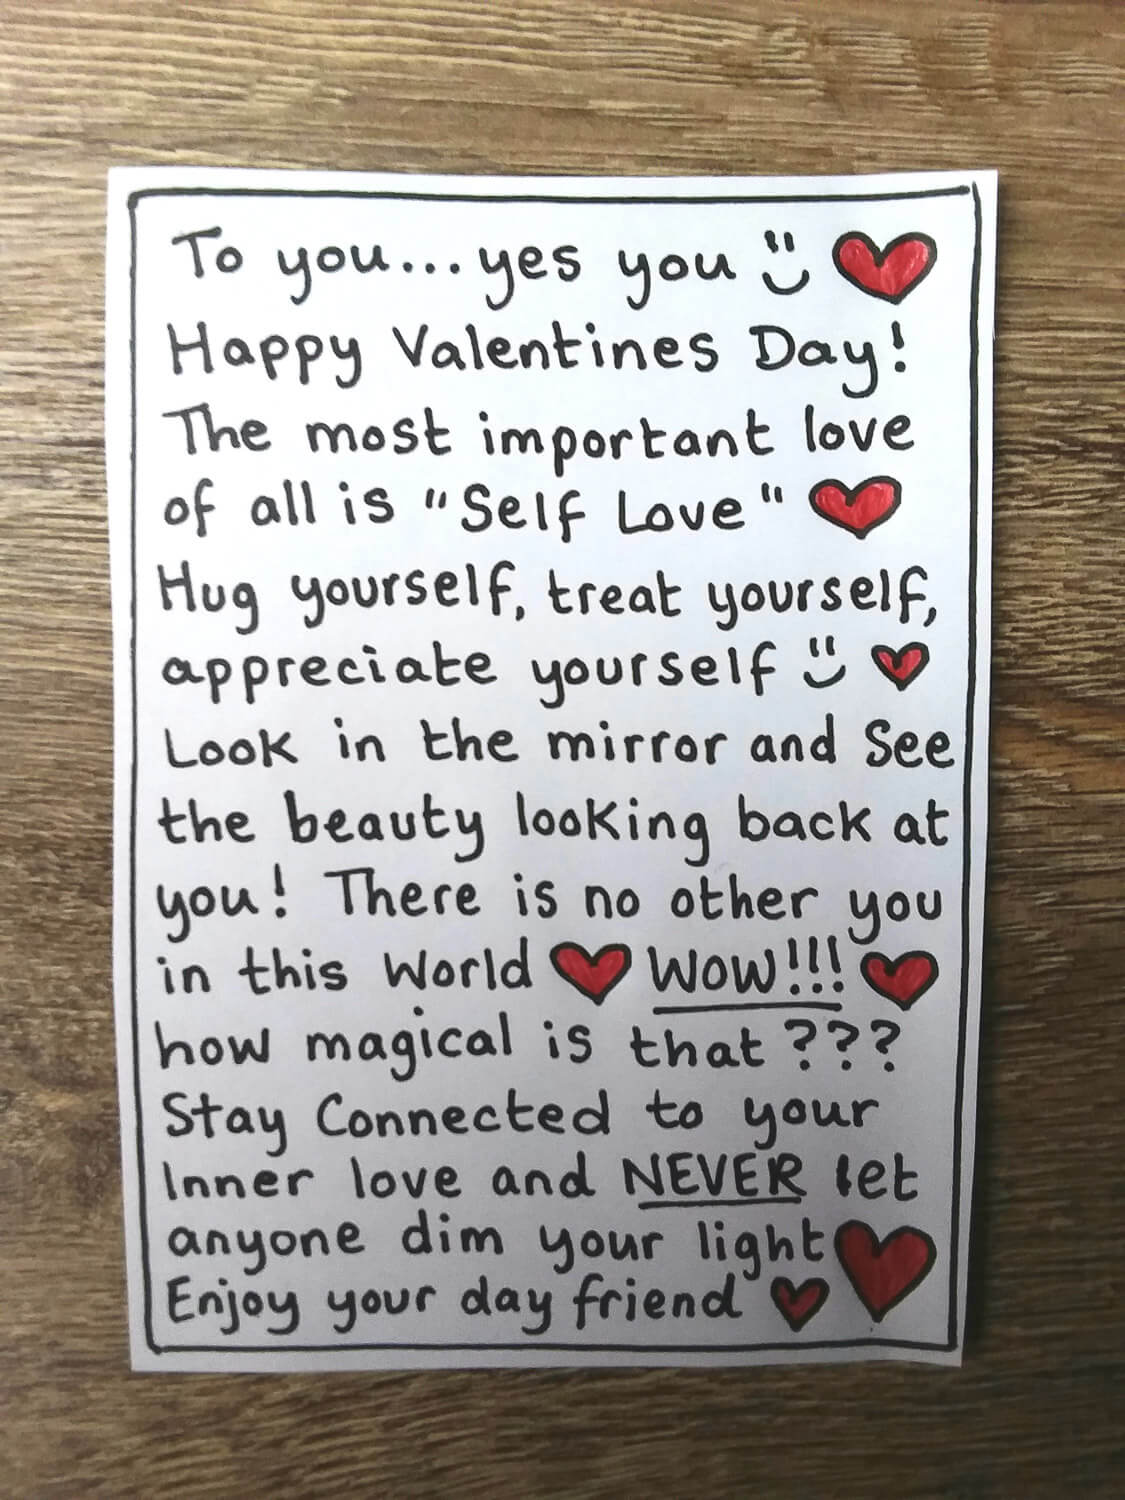 To you... yes you
Happy Valentines Day!
The most important love
of all is "Self Love"
Hug yourself, treat yourself,
appreciate yourself
Look in the mirror and See
the beauty looking back at
you! There is no other you
in this World WOW!!!
how magical is that ???
Stay Connected to your
Inner love and NEVER let
anyone dim your light
Enjoy your day friend